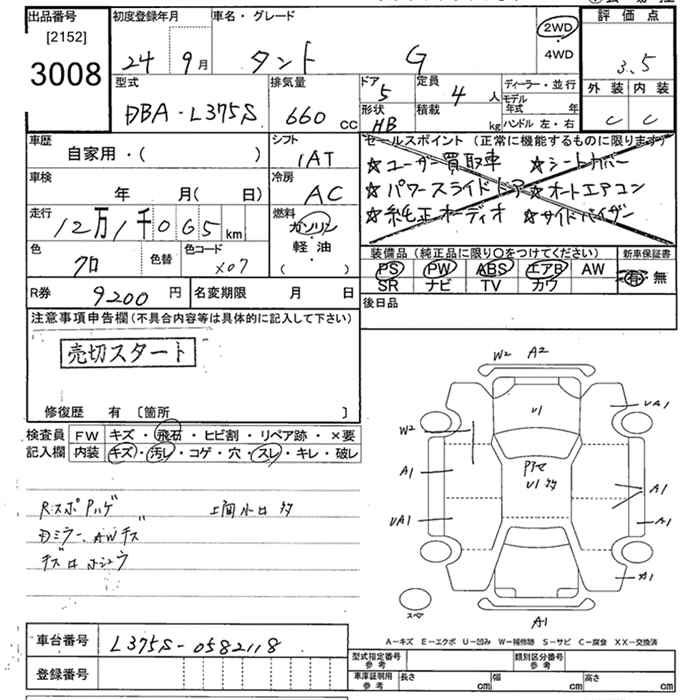 出品番号
[2152]
3008
初度登録年月
24 9月
車名・グレード
タント G
2WD
4WD
評価点
3.5
外装 内装
C C
型式
DBA-L375S
排気量
660 CC
ドア
5
定員
4 人
形状
HB
積載
kg
ディーラー・並行
モデル年式 年
ハンドル 左・右
車歴
自家用・( )
シフト
IAT
車検
年 月( 日)
冷房
AC
走行
12万1千065km
燃料
ガソリン
軽・油
( ・ )
色
クロ
色替
色コード
X07
R券 9200円
名変期限 月 日
セールスポイント(正常に機能するものに限ります)
☆ユーザー買取車 ☆シートカバー
☆パワースライドドア☆オートエアコン
☆純正オーディオ ☆サイドバイザー
装備品(純正品に限り○をつけてください)
PS PW ABS エアB AW
SR ナビ TV カワ
新車保証書
有・無
後日品
注意事項申告欄(不具合内容等は具体的に記入して下さい)
売切スタート
修復歴 有 〔箇所 〕
検査員記入欄
FW キズ・飛石・ヒビ割・リペア跡・×要
内装 キズ・汚レ・コゲ・穴・スレ・キレ・破レ
RスポPハゲ 上面小凹多
Dミラー、AWキズ
W2 A2
U1
UA1
W2
A1
U1多
A1
UA1
A1
A1
A1
スペア
A-キズ E-エクボ U-凹み W-補修跡 S-サビ C-腐食 XX-交換済
車台番号 L375S-0582118
登録番号
型式指定番号参考
類別区分番号参考
車庫証明用参考
長さ cm
幅 cm
高さ cm